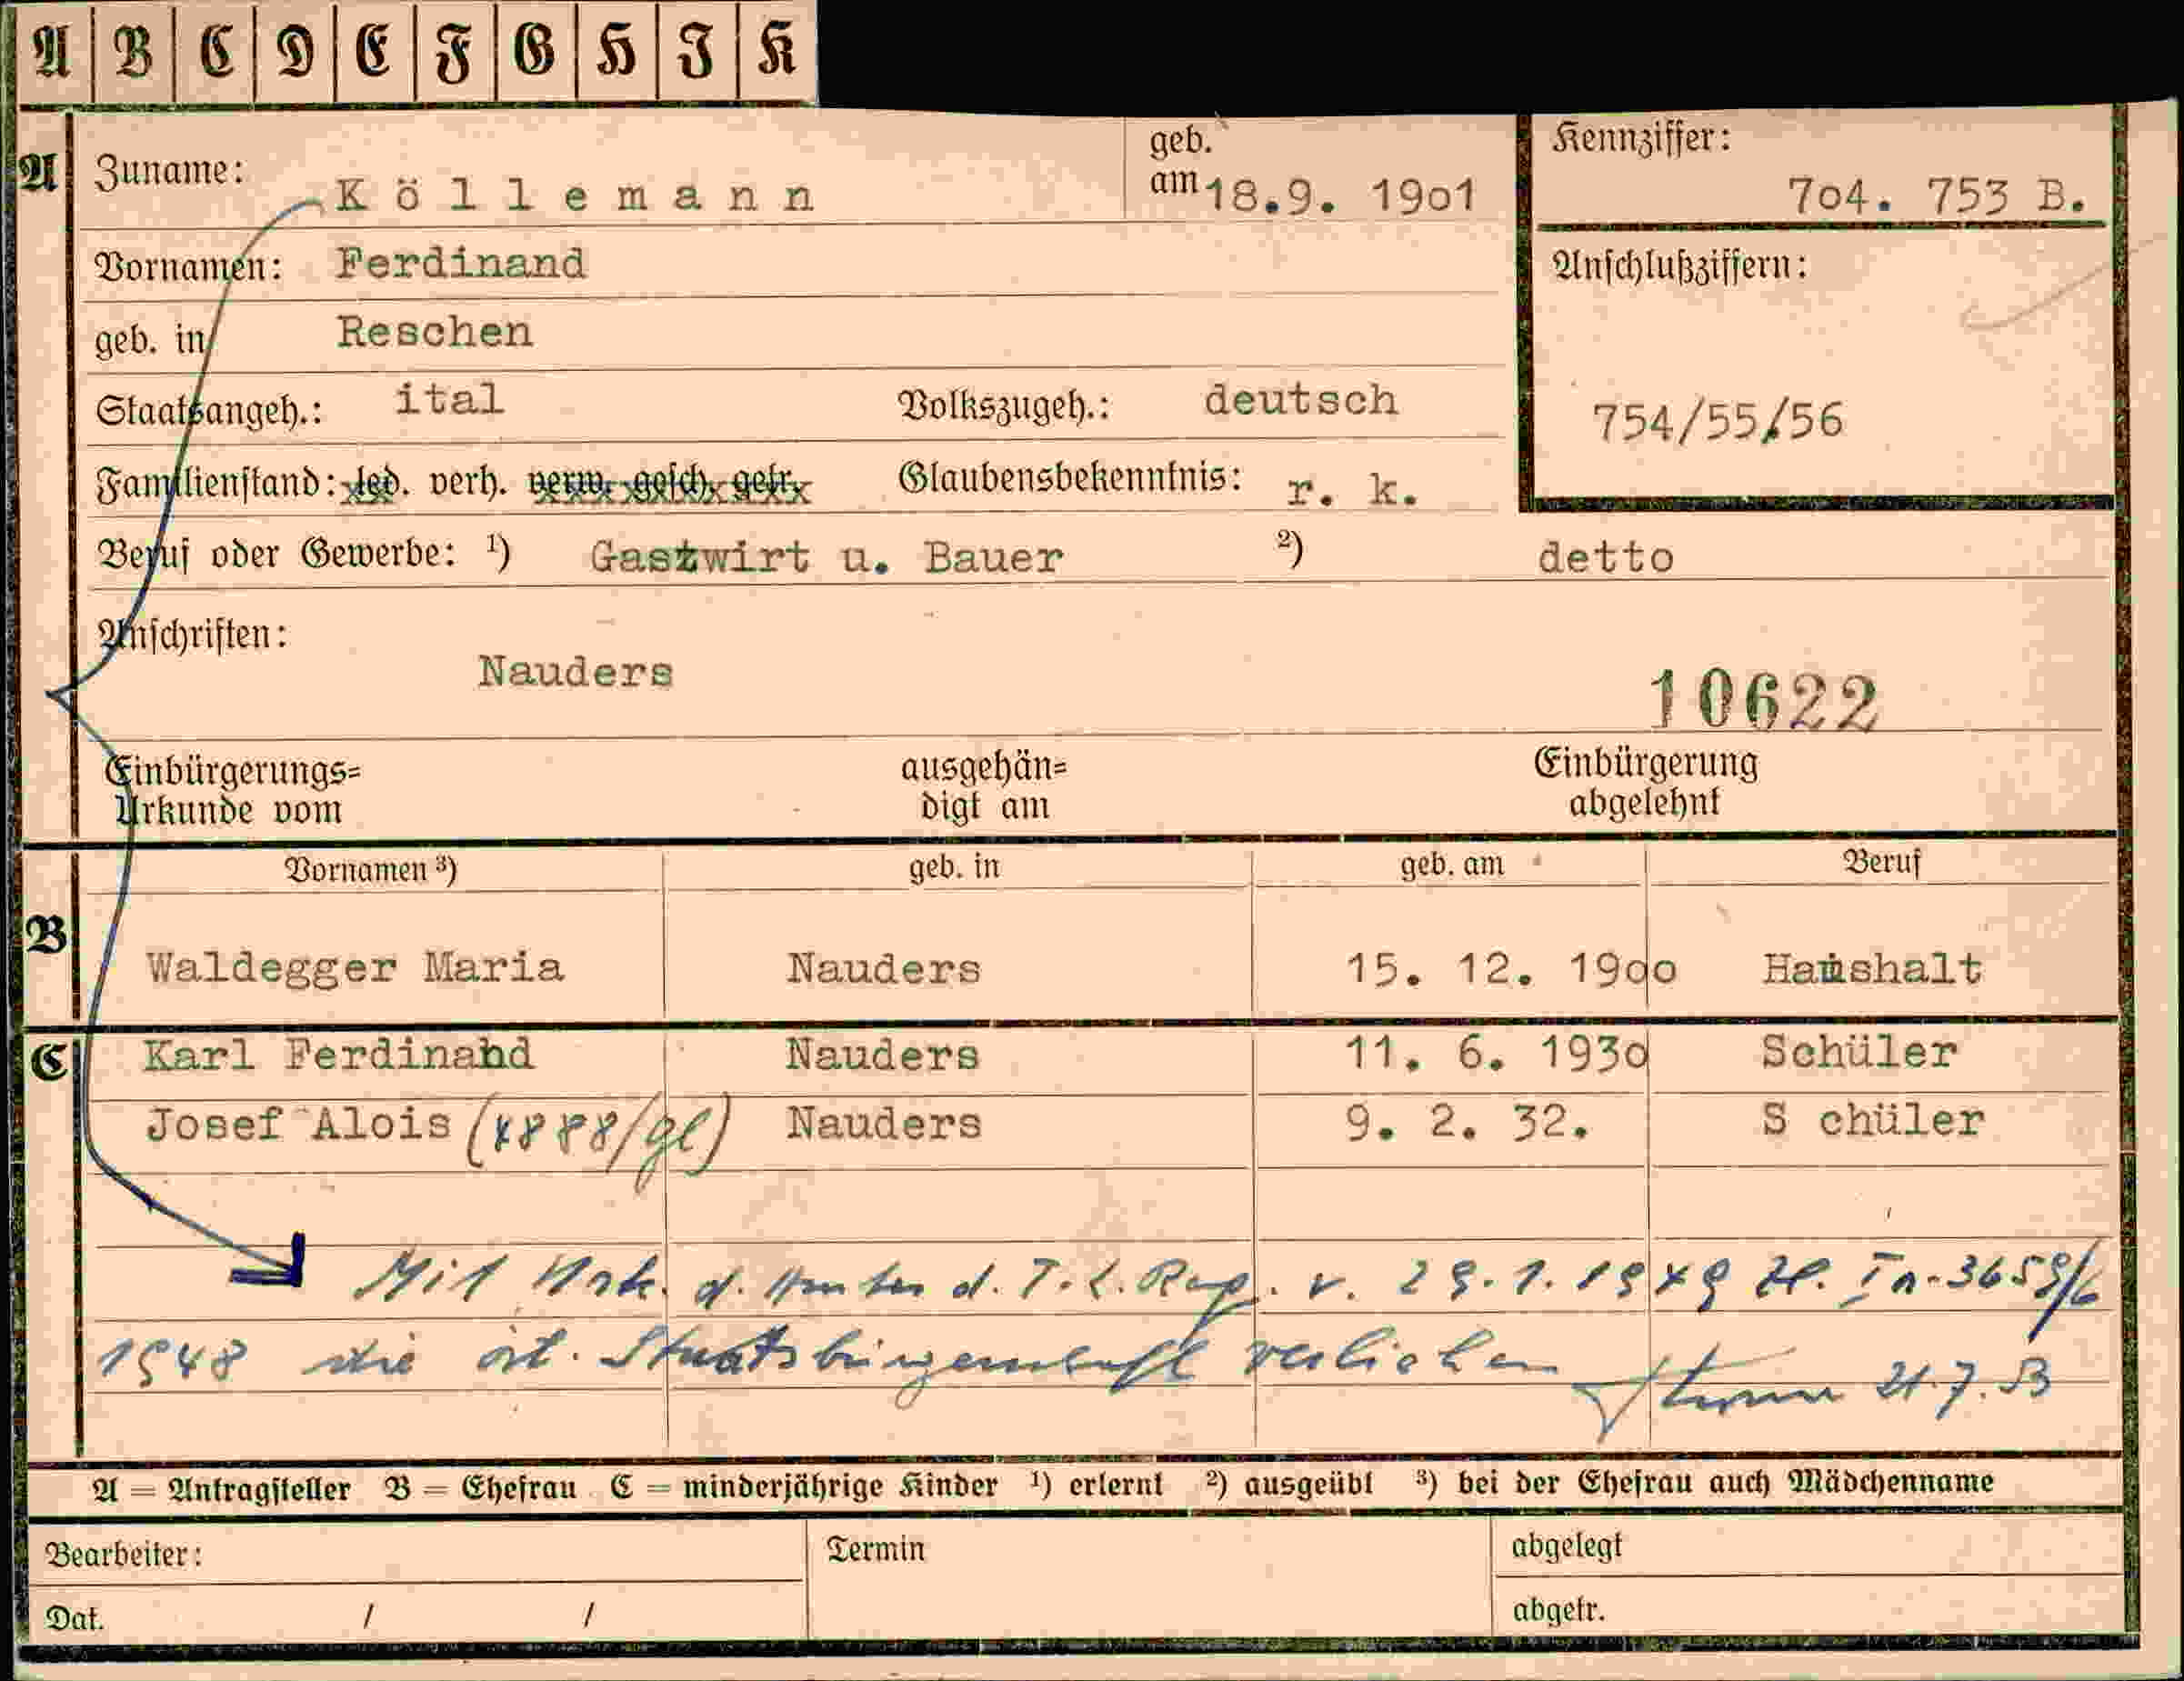 A B C D E F G H I K
A Zuname: Köllemann geb. am 18.9. 19o1 Kennziffer: 7o4. 753 B.
Vornamen: Ferdinand Anschlußziffern:
geb. in Reschen
Staatsangeh.: ital Volkszugeh.: deutsch 754/55/56
Familienstand: led. verh. verw. gesch. getr. Glaubensbekenntnis: r. k.
Beruf oder Gewerbe: ¹) Gastwirt u. Bauer ²) detto
Anschriften:
Nauders 10622
Einbürgerungs= ausgehän= Einbürgerung
Urkunde vom digt am abgelehnt
Vornamen ³) geb. in geb. am Beruf
B Waldegger Maria Nauders 15. 12. 19oo Haushalt
C Karl Ferdinand Nauders 11. 6. 193o Schüler
Josef Alois Nauders 9. 2. 32. S chüler
Mit Urk. d. d. T. L. Reg. v. 29.1.1949 Zl. In-3659/6
1948 die öst. Staatsbürgerschaft verliehen 21.7.53
A = Antragsteller B = Ehefrau C = minderjährige Kinder ¹) erlernt ²) ausgeübt ³) bei der Ehefrau auch Mädchenname
Bearbeiter: Termin abgelegt
Dat. / / abgetr.